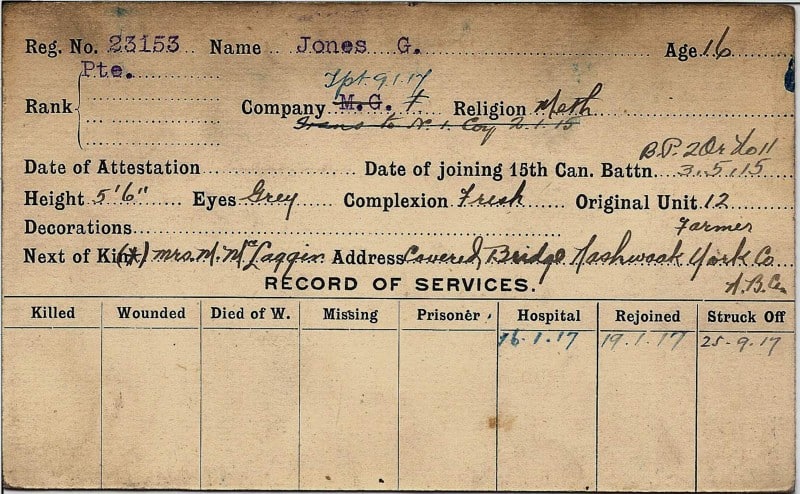 Reg. No. 23153 Name Jones G. Age 16
Pte.
Tpt 9.1.17
Rank Company M.G. Religion Meth
Trans to N. 1. Coy 2.1.15
B.P. 2 Or No 11
Date of Attestation Date of joining 15th Can. Battn. 3.5.15
Height 5'6" Eyes Grey Complexion Fresh Original Unit 12
Decorations Farmer
Next of Kin (x) Mrs. M. McLaggin Address Covered Bridge Nashwaak York Co
N.B. Ca
RECORD OF SERVICES.
Killed Wounded Died of W. Missing Prisoner Hospital Rejoined Struck Off
16.1.17 19.1.17 25-9.17